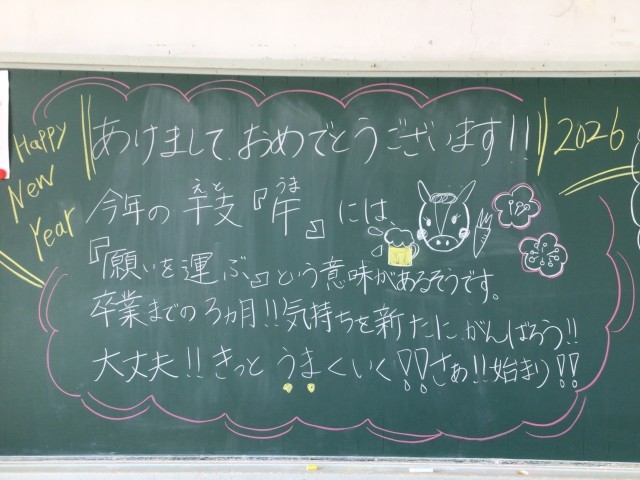 Happy
New
Year
あけまして おめでとうございます!!
2026
えと うま
今年の 干支『午』には、
『願いを運ぶ』という意味があるそうです。
卒業までの3ヵ月!!気持ちを新たに がんばろう!!
大丈夫!!きっと うまくいく!!さぁ!!始まり!!